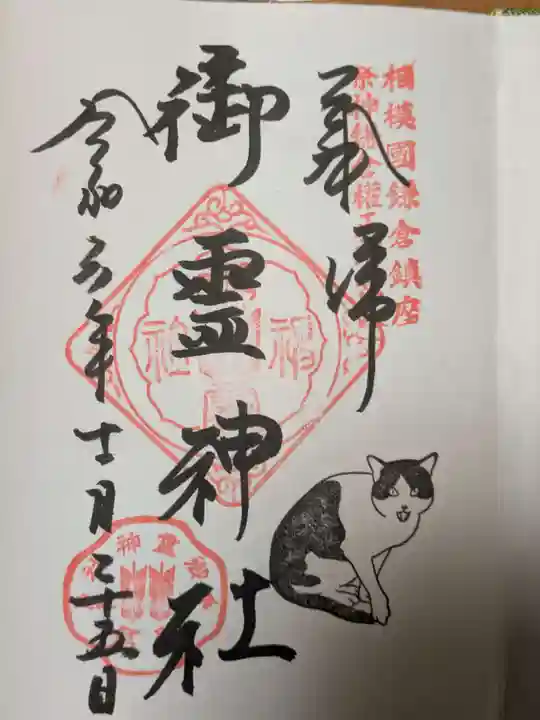 相模國鎌倉鎮座
祭神鎌倉權五
奉拝
御霊神社
令和六年十一月二十五日